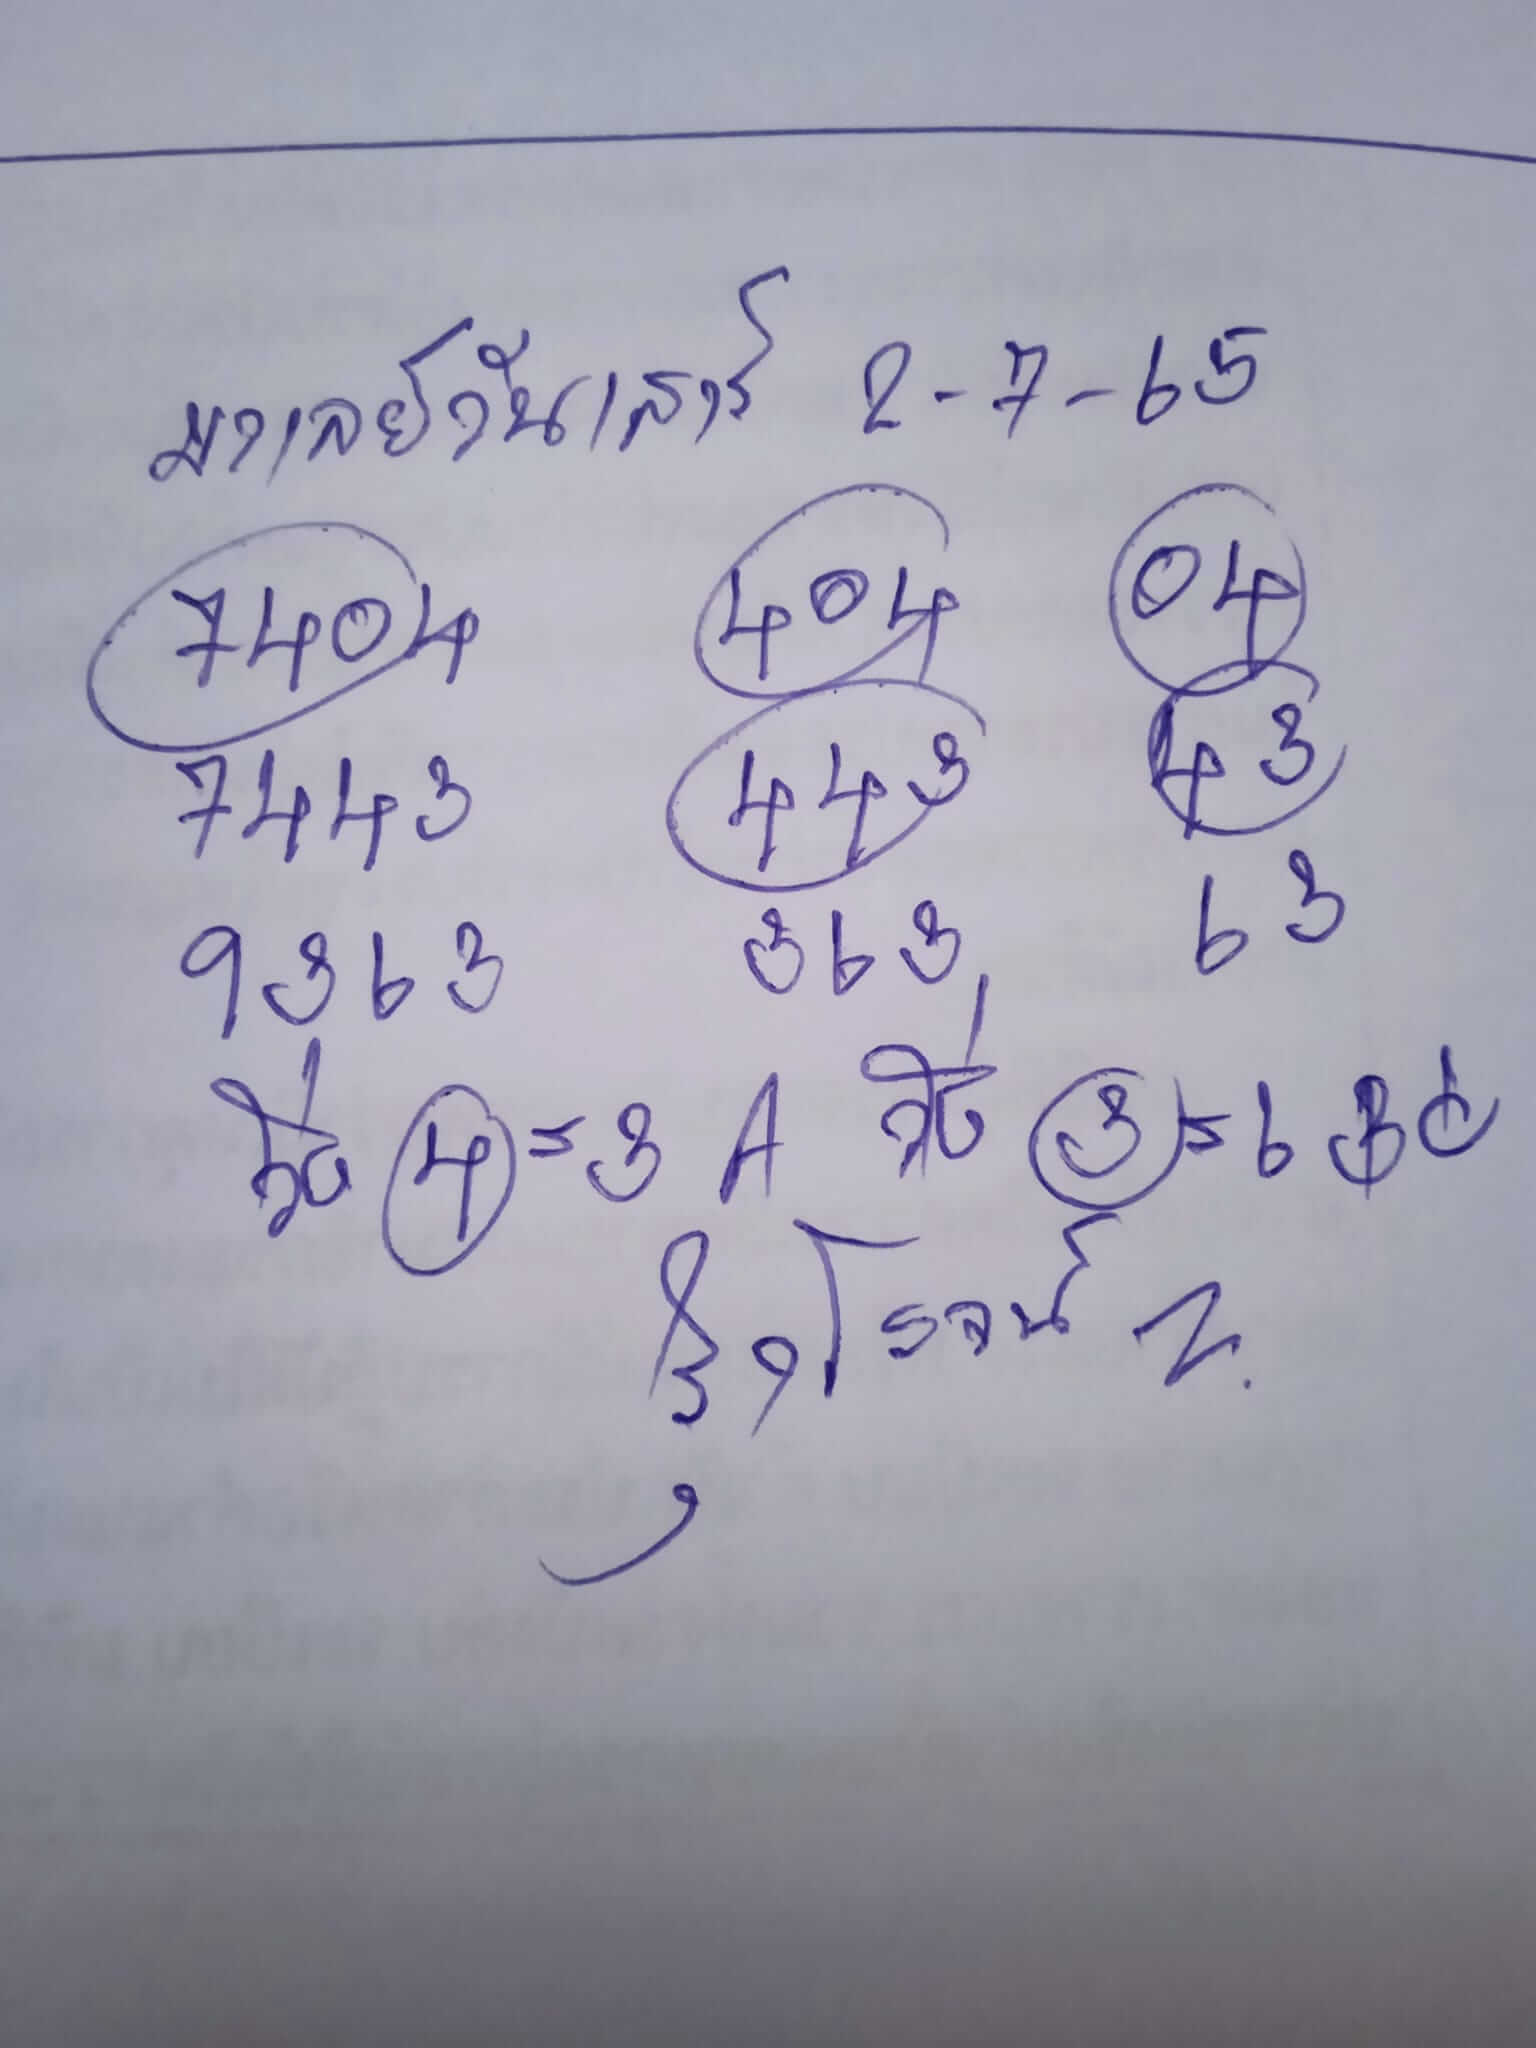 มาเลย์วันเสาร์ 2-7-65
7404 404 04
7443 443 43
9363 363 63
วิ่ง 4 = 3 A วิ่ง 3 = 6
โรจน์